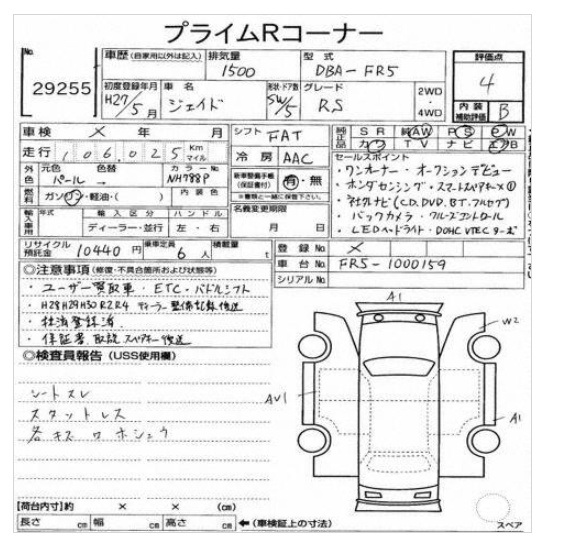 プライムRコーナー
No. 29255
車歴 (自家用以外は記入) 排気量 1500 型式 DBA-FR5
評価点 4
初度登録年月 H27/5月 車名 ジェイド 形状・ドア数 SW/5 グレード RS 2WD・4WD
内装補助評価 B
車検 × 年 月 シフト FAT
純正品 SR 純AW PS PW
カワ TV ナビ エアB
走行 106,025 Km マイル 冷房 AAC
外色 元色 パール 色替 → カラーNo NH788P
新車整備手帳(保証書付) 有・無
※書類と一緒に保管下さい。
燃料 ガソリン・軽油・( ) 内装色
セールスポイント
・ワンオーナー ・オークションデビュー
・ホンダセンシング・スマートスペアキー×①
・社外ナビ(CD.DVD.BT.フルセグ)
・バックカメラ・クルーズコントロール
・LEDヘッドライト・DOHC VTEC ターボ
輸入車用 年式 輸入区分 ハンドル
ディーラー・並行 左・右
名義変更期限 月 日
リサイクル預託金 10440 円 乗車定員 6 人 積載量 t
登録No. ×
車台No. FR5-1000159
シリアルNo.
◎注意事項 (修復・不具合箇所および状態等)
・ユーザー買取車・ETC・パドルシフト
・H28H29H30R2R4 ディーラー整備記録後送
・抹消登録済
・保証書、取説、スペアキー後送
◎検査員報告 (USS使用欄)
シートスレ
スタットレス
各キズ ワ ホシュウ
A1
W2
AU1
A1
【荷台内寸】約 × × (cm)
長さ cm 幅 cm 高さ cm ←(車検証上の寸法)
スペア